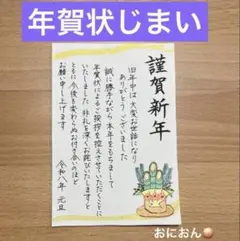 年賀状じまい
謹賀新年
旧年中は大変お世話になり
ありがとうございました
誠に勝手ながら本年をもちまして
年賀状によるご挨拶を控えさせていただくことに
いたしました 非礼を深くお詫びいたしますと
ともに今後も変わらぬお付き合いのほど
お願い申し上げます
令和八年 元旦
おにおん